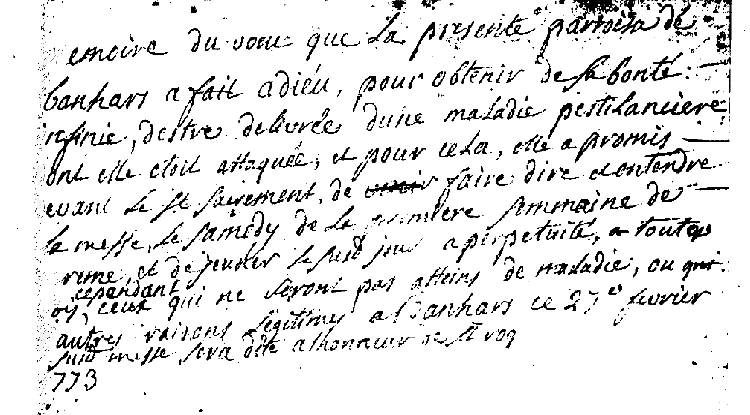 emoire du voeu que La presente parroisse de
banhars a fait adieu, pour obtenir de sa bonté
infinie, destre delivrée dune maladie pestilanciere
ont elle etoit attaquée, et pour cela, elle a promis
evant le st sacrement, de faire dire et entendre
la messe, le samedy de la premiere semmaine de
reme, et de jeuner le susd jour a perpetuité, a toutes
cependant
ceux qui ne seront pas atteins de maladie, ou
autres raisons legitimes a Banhars ce 27e fevrier
susd messe sera dite a lhonneur de st roq
773